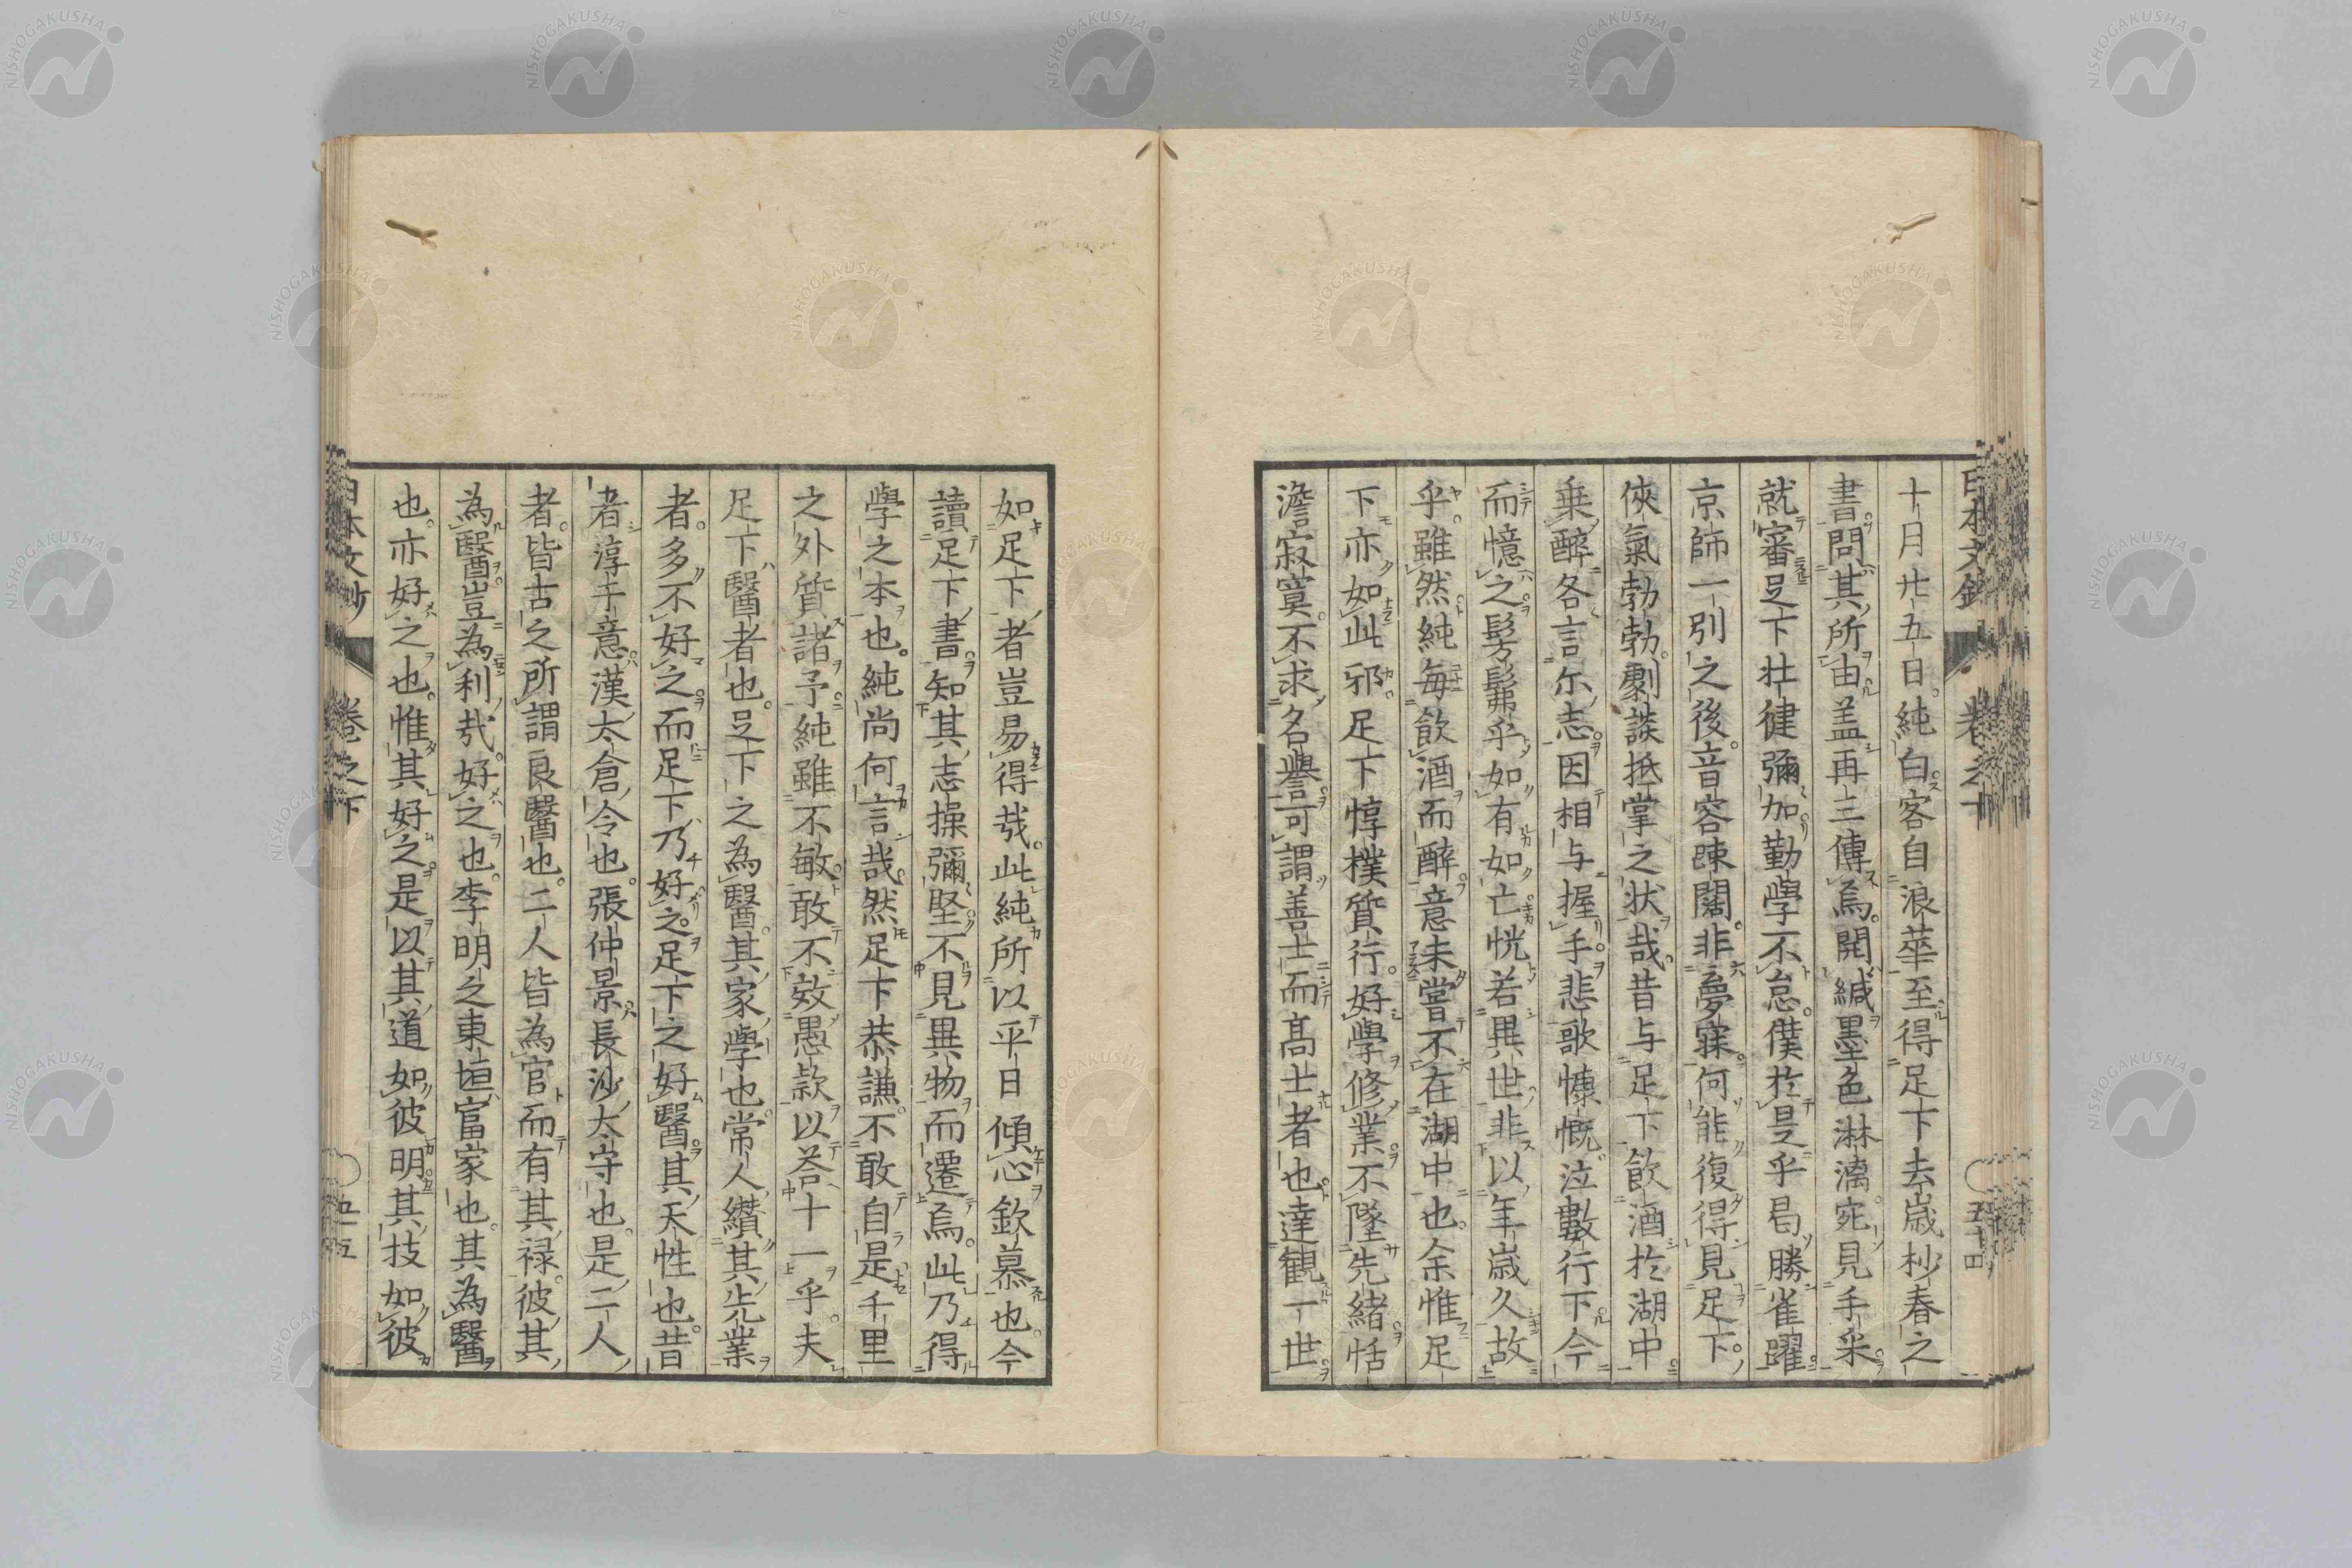 十月廿五日。純白。客自浪華至得足下去歲杪春之
書。問其所由。盖再三傳焉。開緘墨色淋漓。宛見手采。
就審足下壮健彌加勤學不怠。僕於是乎曷勝雀躍。
京師一別之後。音容踈闊。非夢寐。何能復得見足下。
俠氣勃勃。劇談抵掌之状哉。昔与足下飲酒於湖中。
乗醉各言尓志。因相与握手。悲歌慷慨泣數行下。今
而憶之髣髴乎如有如亡。恍若異世。非以年歲久故
乎。雖然純每飲酒而醉。意未嘗不在湖中也。余惟足
下亦如此邪。足下惇樸質行。好學修業。不墜先緒。恬
澹寂寞。不求名譽。可謂善士而髙士者也。達観一世
如足下者豈易得哉。此純所以平日傾心欽慕也。今
讀足下書。知其志操彌堅。不見異物而遷焉。此乃得
學之本也。純尚何言哉。然足下恭謙。不敢自是千里
之外質諸予。純雖不敏。敢不效愚款以荅十一乎。夫
足下醫者也。足下之為醫。其家學也。常人纘其先業
者。多不好之。而足下乃好之。足下之好醫。其天性也。昔
者淳于意。漢太倉令也。張仲景。長沙太守也。是二人
者。皆古之所謂良醫也。二人皆為官而有其禄。彼其
為醫。豈為利哉。好之也。李明之東垣冨家也。其為醫
也。亦好之也。惟其好之。是以其道如彼明。其技如彼
日本文鈔
卷之下
五十四
五十五
NISHOGAKUSHA